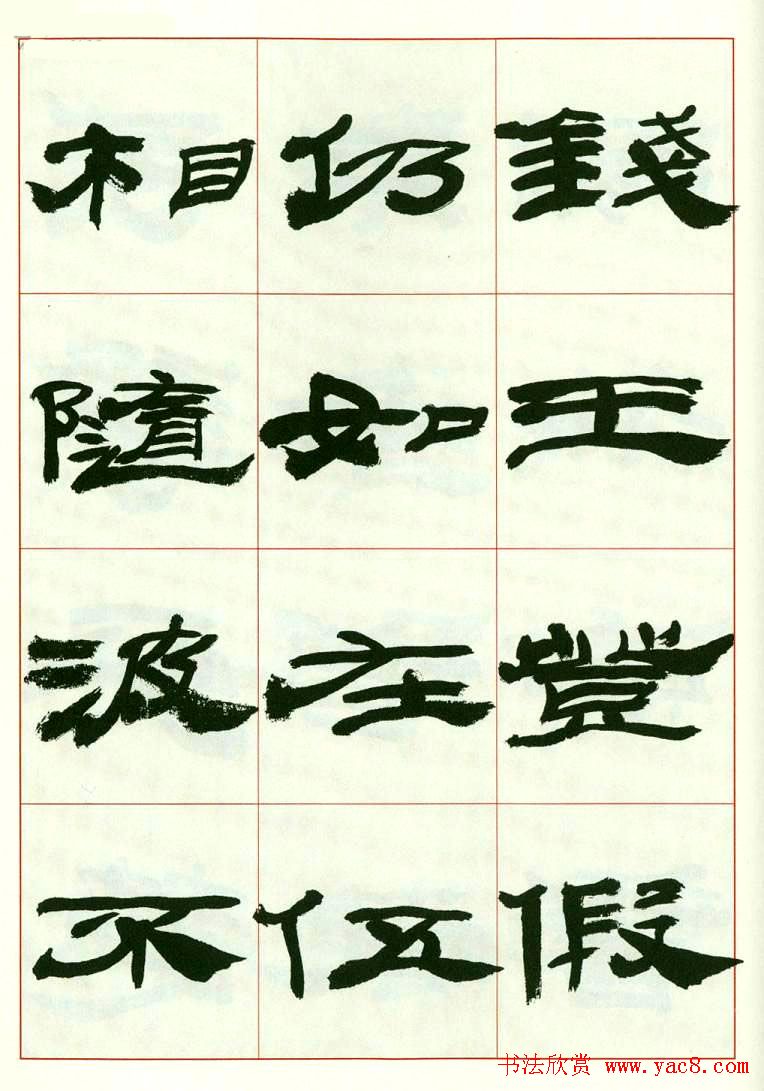 錢王登假
仍如在伍
相随波不
书法欣赏 www.yac8.com